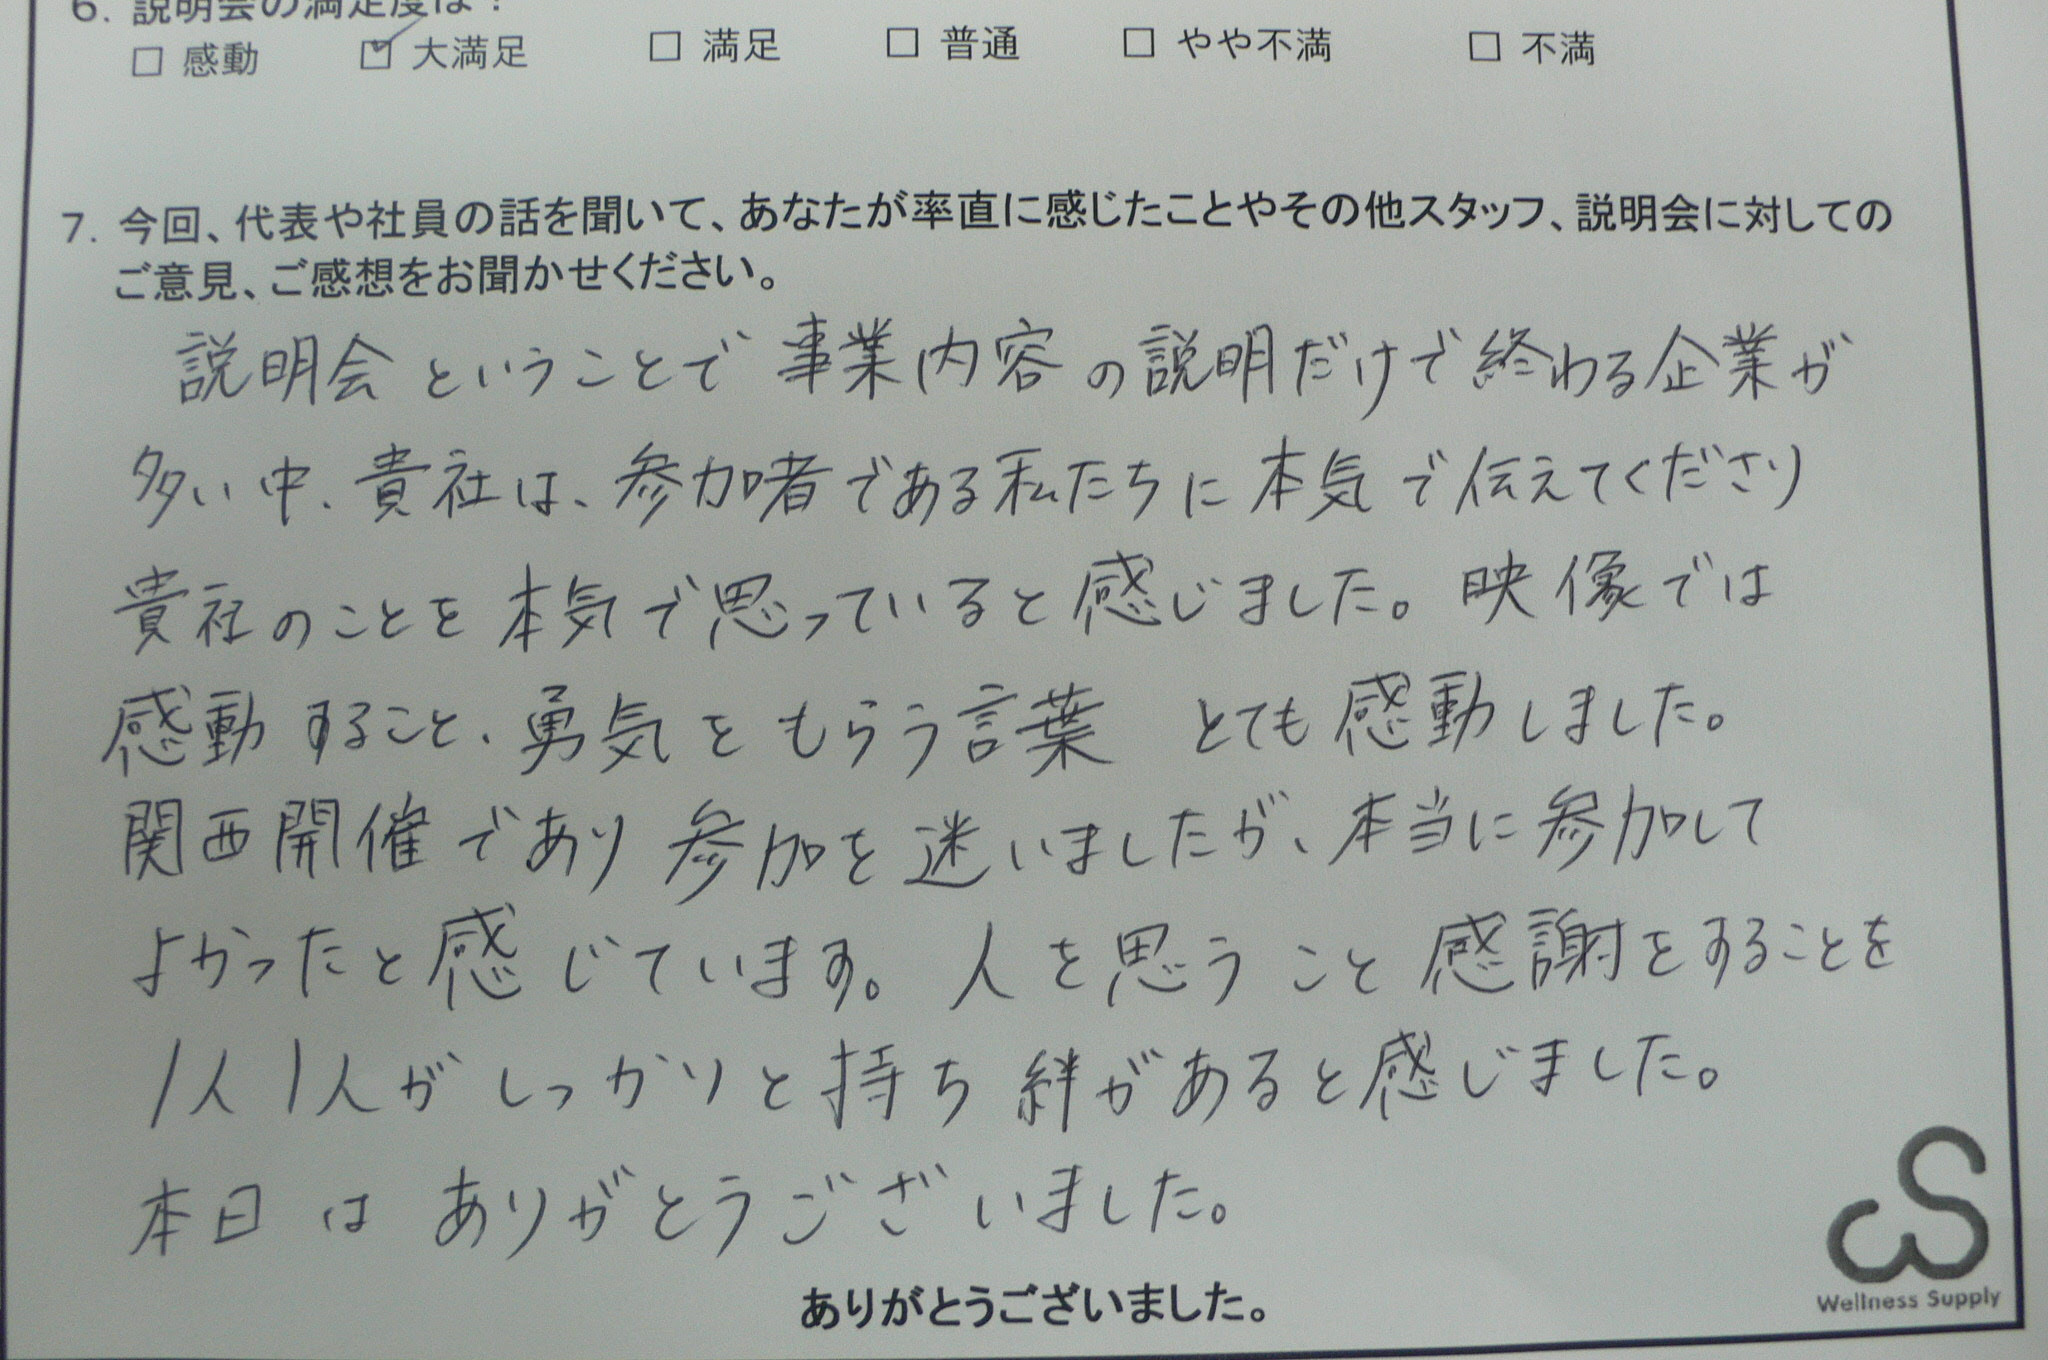 6. 説明会の満足度は?
□ 感動 ☑ 大満足 □ 満足 □ 普通 □ やや不満 □ 不満
7. 今回、代表や社員の話を聞いて、あなたが率直に感じたことやその他スタッフ、説明会に対しての
ご意見、ご感想をお聞かせください。
説明会ということで事業内容の説明だけで終わる企業が
多い中、貴社は、参加者である私たちに本気で伝えてくださり
貴社のことを本気で思っていると感じました。映像では
感動すること、勇気をもらう言葉 とても感動しました。
関西開催であり参加を迷いましたが、本当に参加して
よかったと感じています。人を思うこと感謝をすることを
1人1人がしっかりと持ち絆があると感じました。
本日は ありがとうございました。
ありがとうございました。
Wellness Supply